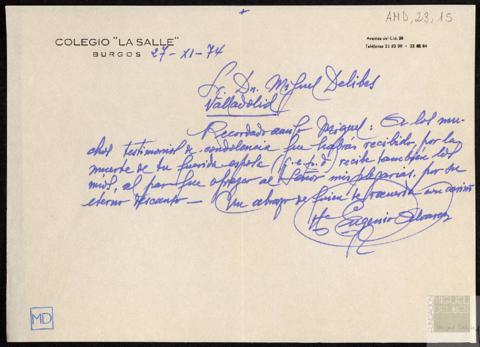 AMD, 23, 15
COLEGIO "LA SALLE"
BURGOS
Avenida del Cid, 29
27-XI-74
Sr. Dn. Miguel Delibes
Valladolid
Recordado amigo Miguel: A los mu-
chos testimonios de condolencia que habrás recibido por la
muerte de tu querida esposa (q.e.p.d) recibe también los
míos, al par que ofrezco al Señor mis plegarias por su
eterno descanso - Un abrazo de quien te recuerda con cariño
Eugenio Alvarez
MD